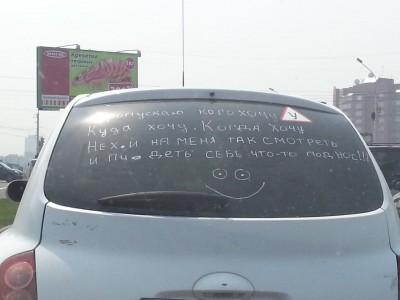 Креветка
пропускаю кого хочу
куда хочу. Когда хочу
Нех.й на меня так смотреть
и пи.деть себе что-то под нос!!!
У